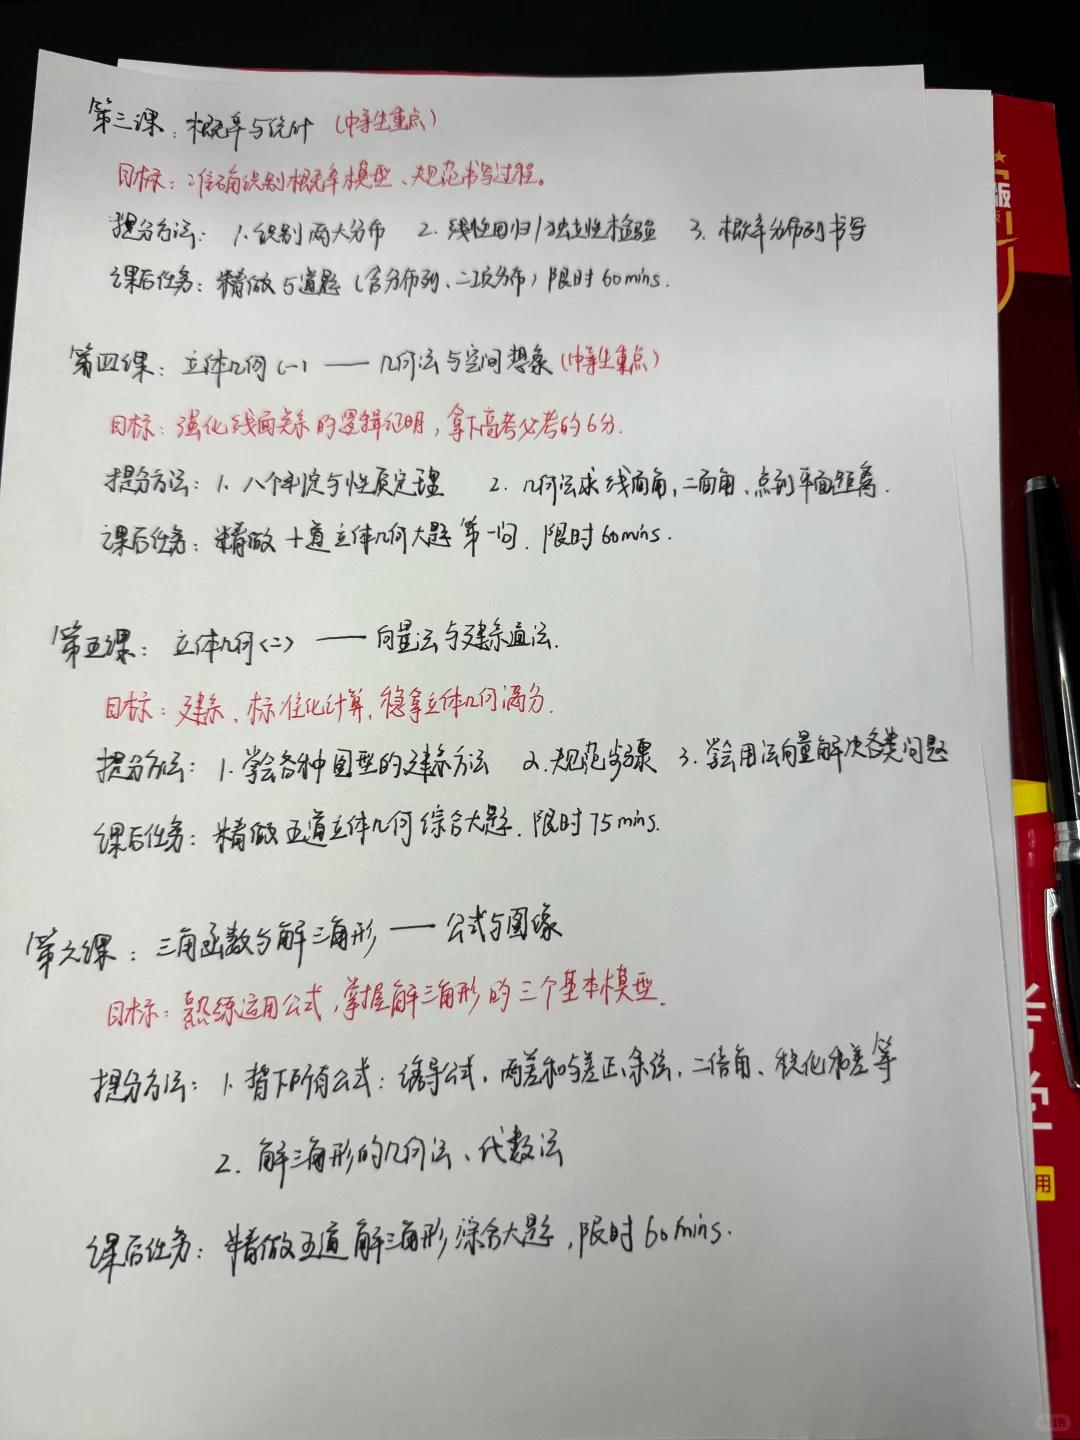 第三课：概率与统计（中等生重点）
目标：准确识别概率模型、规范书写过程。
提分方法：1.识别两大分布 2.线性回归/独立性检验 3.概率分布列书写
课后任务：精做5道题（含分布列、二项分布）限时60mins.
第四课：立体几何（一）——几何法与空间想象（中等生重点）
目标：强化线面关系的逻辑证明，拿下高考必考的6分.
提分方法：1.八个判定与性质定理 2.几何法求线面角，二面角、点到平面距离.
课后任务：精做十道立体几何大题第一问.限时60mins.
第五课：立体几何（二）——向量法与建系通法.
目标：建系、标准化计算，稳拿立体几何满分.
提分方法：1.学会各种图型的建系方法 2.规范步骤 3.学会用法向量解决各类问题
课后任务：精做五道立体几何综合大题.限时75mins.
第六课：三角函数与解三角形——公式与图像
目标：熟练运用公式，掌握解三角形的三个基本模型.
提分方法：1.背下所有公式：诱导公式，两差和与差正、余弦，二倍角、积化和差等
2.解三角形的几何法、代数法
课后任务：精做五道解三角形综合大题，限时60mins.
版
考
学
用